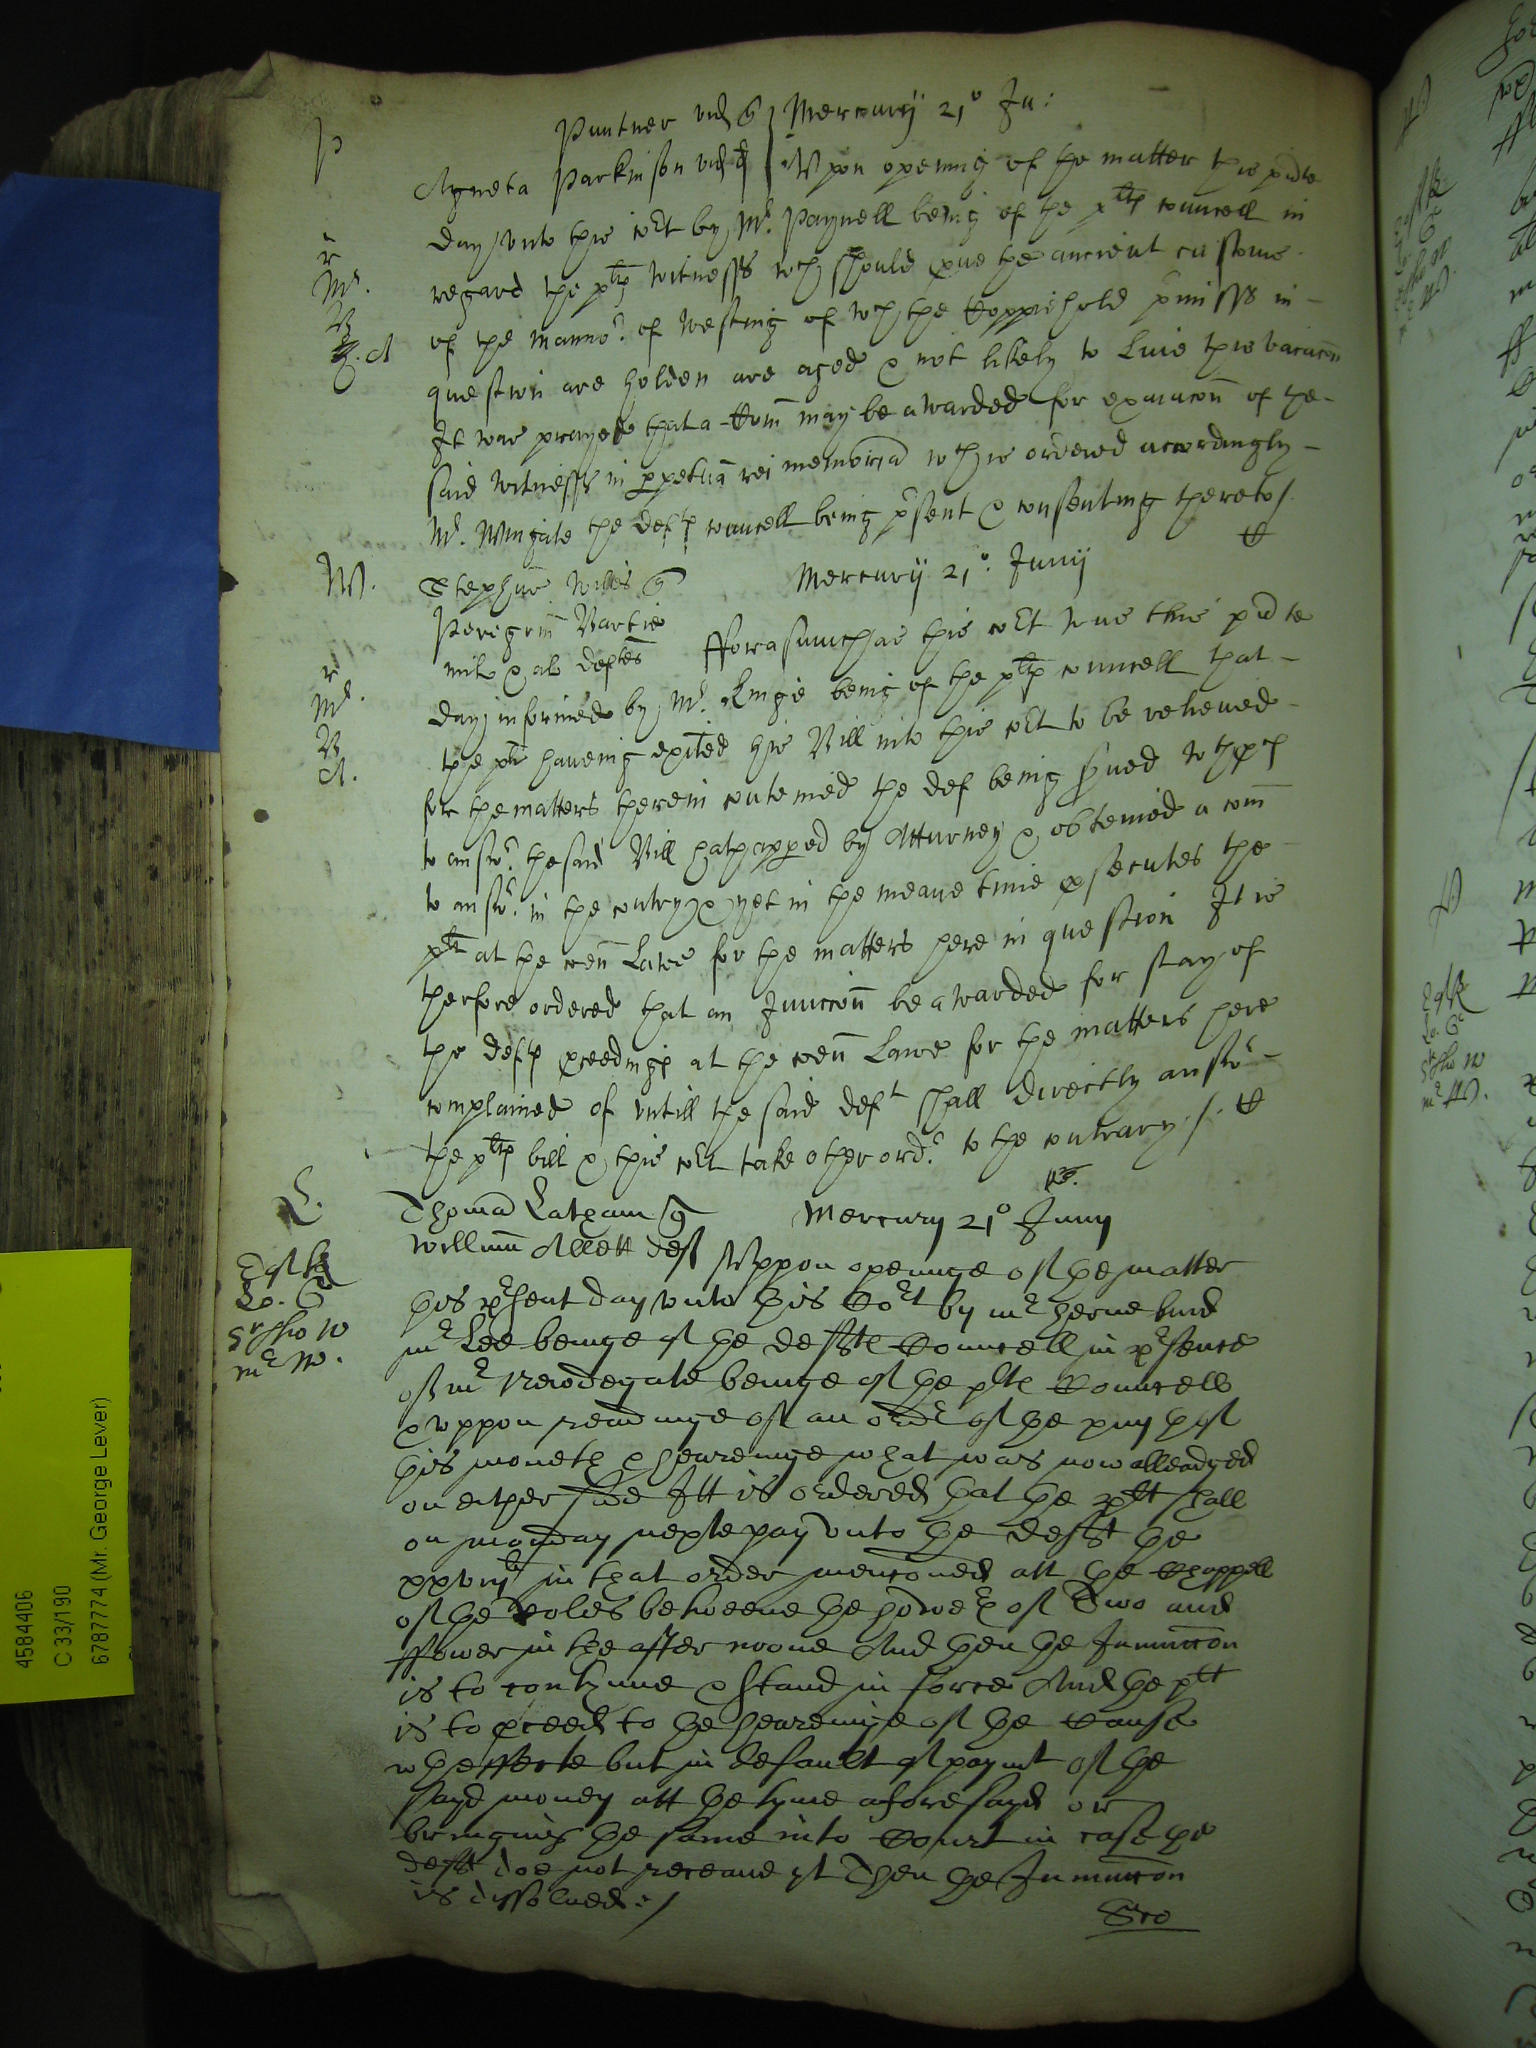 P
Puntner vid q Mercurij 21° Ju:
Agneta Parkinson vid d Uppon opening of the matter this pnte
day vnto this coᵗt by Mʳ Paynell being of the pˡᵗˢ councell in
regard the pˡᵗˢ witnesses wᶜʰ should prue the ancient custome
of the mannoʳ of Westing of wᶜʰ the Coppiehold pmisss in
question are holden are aged & not likely to Liue this vacacōn
It was prayed that a Com̄ may be awarded for exaīacōn of the
said witnesses in ppetuā rei memoriā wᶜʰ is ordered accordingly
Mʳ Wingate the defᵗˢ councell being pʳsent & consenting thereto /.
r
Mʳ.
B
A
W.
Stephūs Willes q Mercurij 21°. Junij
Peregrin Bartie
mil & al defᵗᵉˢ fforasmuch as this coᵗt was this pnte
day informed by Mʳ Kinge being of the pˡᵗˢ councell that
the plt haueing exited his Bill into this coᵗt to be releiued
for the matters therein conteined the def being serued wᵗʰ pces
to answʳ the said Bill hath appered by Atturney & obteined a com̄
to answʳ in the contry & yet in the meane time psecutes the
plt at the coēn Lawe for the matters here in question It is
therfore ordered that an Iniuncōn be awarded for stay of
the defᵗˢ pceedings at the coēn Lawe for the matters here
complained of vntill the said defᵗ shall directly answʳ
the pˡᵗˢ bill & this coᵗt take other ordʳ to the contrary /.
r
Mʳ.
B
A.
L.
Thomas Latham q Mercury 21° Juny
Willmū Allett deft Vppon openinge of the matter
this pʳsent day vnto this Coʳt by mʳ Herne and
mʳ Lee beinge of the deftˢ Councell in pʳsence
of mʳ Newdegate beinge of the pltˢ Councell
& vppon readinge of an ordʳ of the xvij th of
this moneth & hearinge what was now alleadged
on ether side Itt is ordered that the plt shall
on monday nexte pay vnto the deft the
xxviijˡ in that order mencōned att the Chappell
of the Rolles betweene the howeʳs of Two and
ffower in the after noone And then the Iniunccōn
is to contynue & stand in force And the plt
is to pceed to the hearinge of the Cause
wth effecte but in default of paymt of the
sayd money att the tyme aforesayd or
bringing the same into Court in case the
deft doe not receaue yt Then the Iniunccōn
is dissolued: /
Lo. C
Sʳ Jho W
mʳ W.
4584406
C 33/190
6787774 (Mr. George Lever)